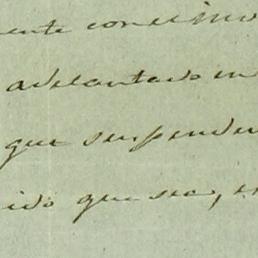 ente continu
adelantado en
que suspender
ido que sea, e